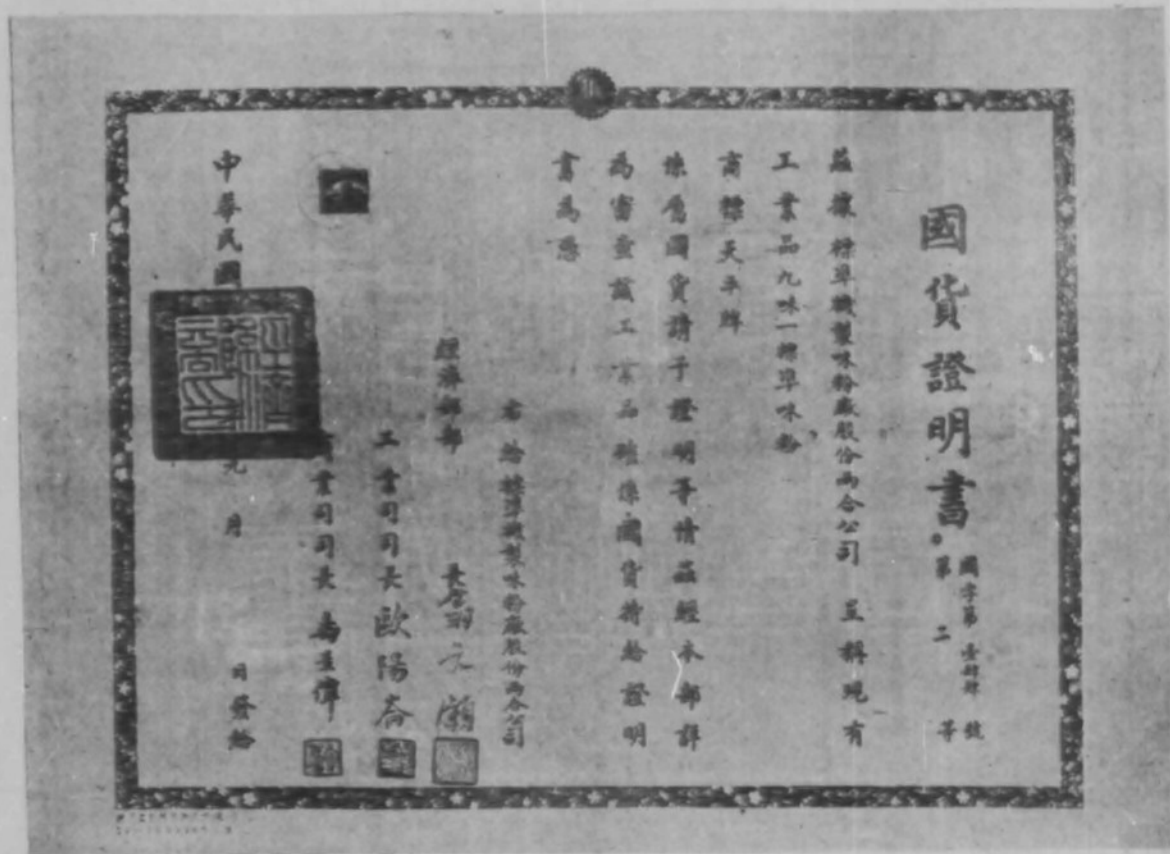 國貨證明書
國字第 號
第二等
茲據 機製味粉廠股份兩合公司 呈稱現有
工業品九味一 味粉
商標天平牌
係屬國貨請予證明等情茲經本部詳
為審查該工業品確係國貨特給證明
書為憑
右給 機製味粉廠股份兩合公司
經濟部部長翁文灝
工業司司長歐陽崙
業司司長
中華民國 元月 日發給
經濟部